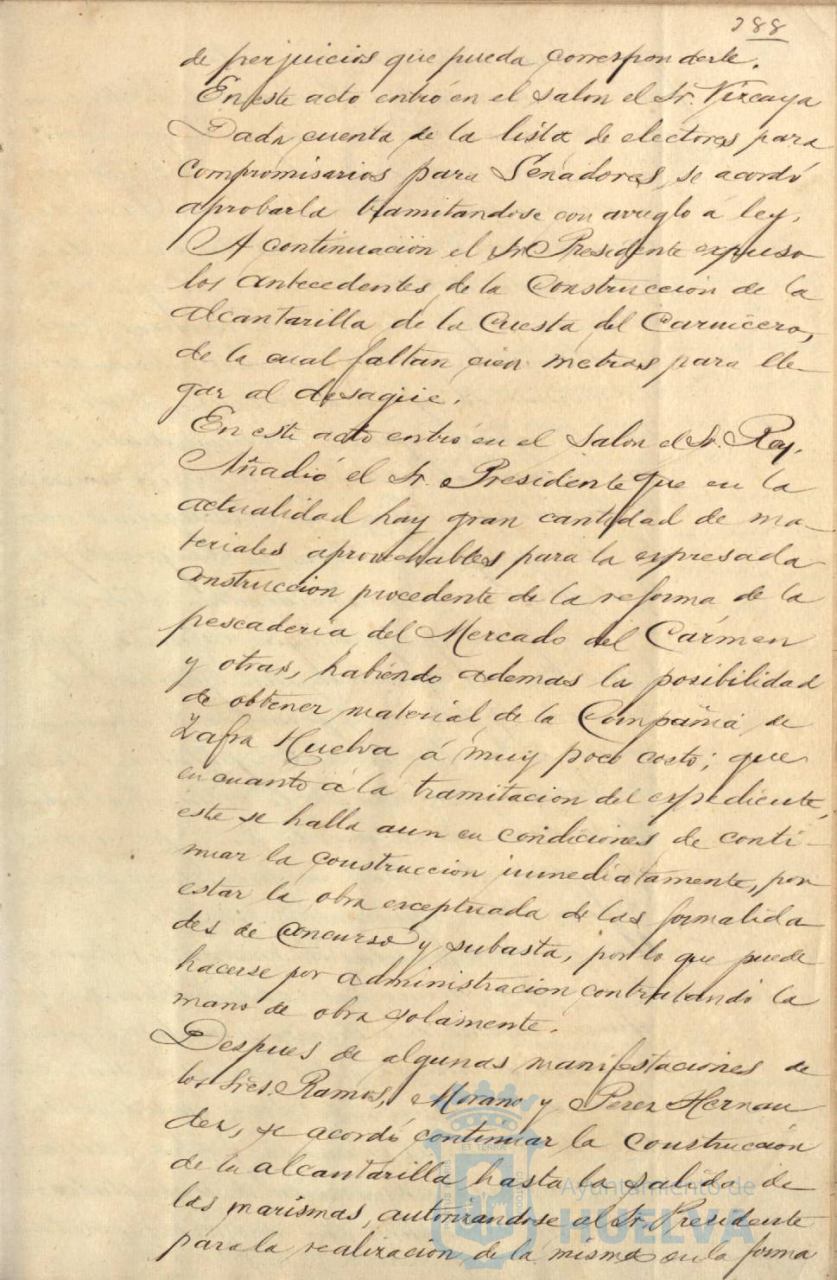 288
de perjuicios que pueda corresponderle.
En este acto entró en el salon el Sr. Vizcaya
Dada cuenta de la lista de electores para
compromisarios para Senadores, se acordó
aprobarla tramitandose con arreglo á ley.
A continuación el Sr. Presidente expuso
los antecedentes de la construccion de la
alcantarilla de la Cuesta del Carnicero,
de la cual faltan cien metros para lle-
gar al desagüe.
En este acto entró en el Salon el Sr. Rey.
Añadió el Sr. Presidente que en la
actualidad hay gran cantidad de ma-
teriales aprovechables para la expresada
construccion procedente de la reforma de la
pescaderia del Mercado del Cármen
y otras, habiendo ademas la posibilidad
de obtener material de la Compañia de
Zafra Huelva á muy poco costo; que
en cuanto á la tramitacion del expediente,
este se halla aun en condiciones de conti-
nuar la construccion inmediatamente, por
estar la obra exceptuada de las formalida
des de concurso y subasta, por lo que puede
hacerse por administracion contratando la
mano de obra solamente.
Despues de algunas manifestaciones de
los Sres. Ramos, Morano y Perez Hernan
dez, se acordó continuar la construcción
de la alcantarilla hasta la salida de
las marismas, autorizandose al Sr. Presidente
para la realizacion de la misma en la forma
Ayuntamiento de
HUELVA